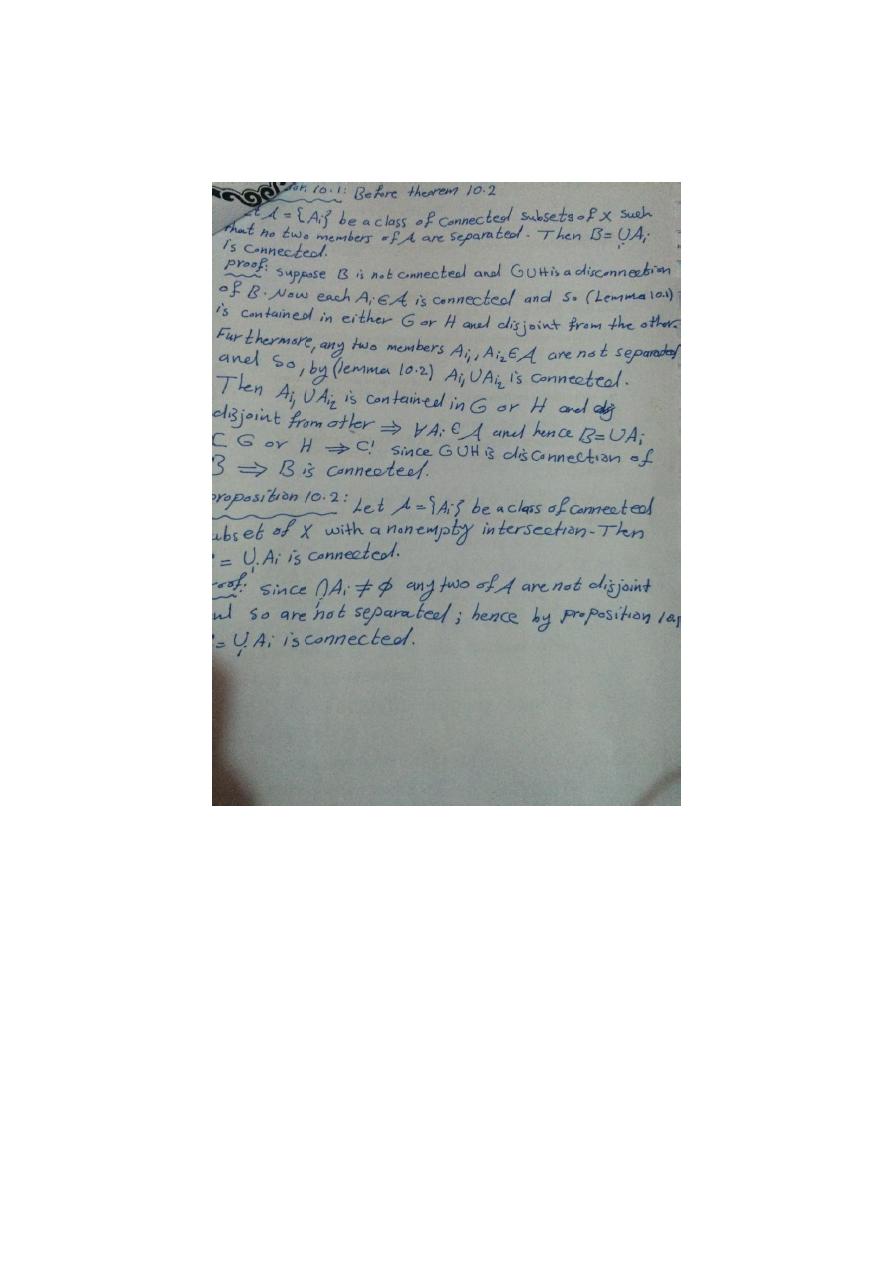 10.1: Before theorem 10.2
A = {Ai} be a class of connected subsets of X such
that no two members of A are separated. Then B= ∪Ai
i
is connected.
proof: suppose B is not connected and G∪H is a disconnection
of B. Now each Ai ∈ A is connected and so (Lemma 10.1)
is contained in either G or H and disjoint from the other.
Furthermore, any two members Ai₁, Ai₂ ∈ A are not separated
and so, by (lemma 10.2) Ai₁ ∪ Ai₂ is connected.
Then Ai₁ ∪ Ai₂ is contained in G or H and
disjoint from other ⇒ ∀Ai ∈ A and hence B= ∪Ai
⊂ G or H ⇒ C! since G∪H is disconnection of
B ⇒ B is connected.
proposition 10.2: Let A = {Ai} be a class of connected
ubset of X with a nonempty intersection. Then
= ∪ Ai is connected.
i
oof: since ∩ Ai ≠ ϕ any two of A are not disjoint
i
so are not separated; hence by proposition
= ∪ Ai is connected.
i